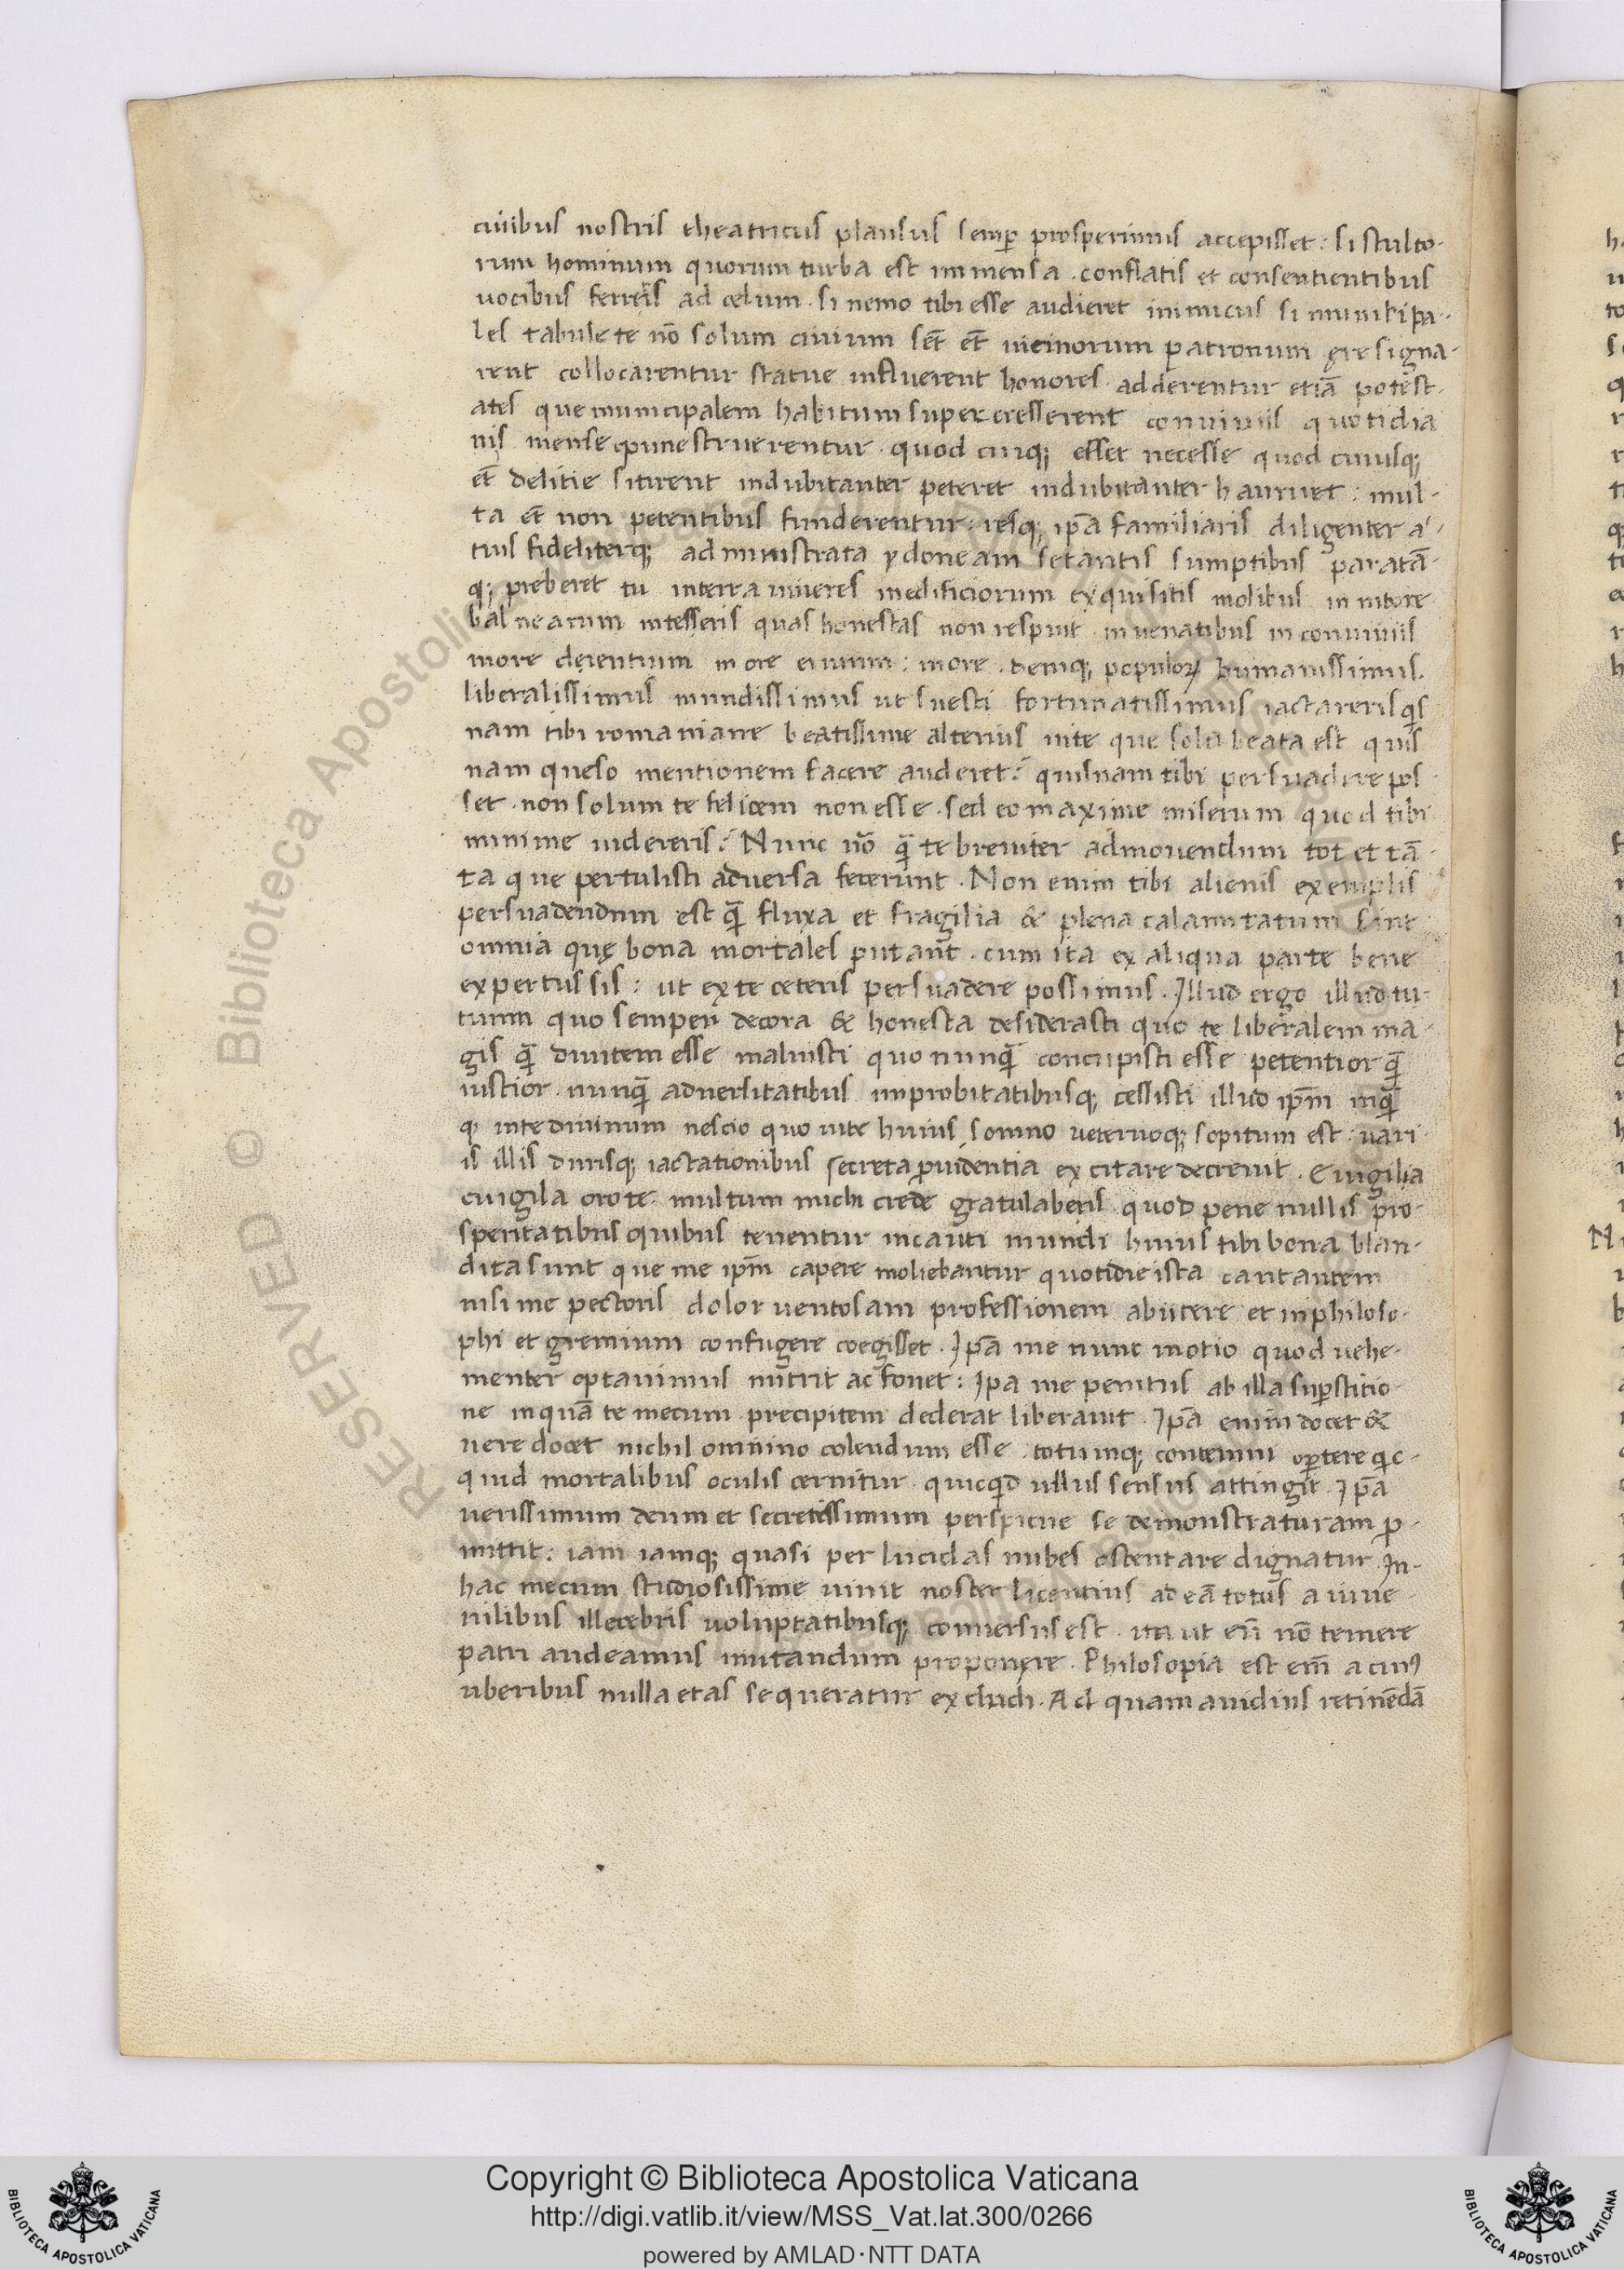 ciuibus nostris theatricus plausus semp̄ prosperimus accepisset : si stulto-
rum hominum quorum turba est immensa . conflatis et consentientibus
uocibus ferreris ad celum . si nemo tibi esse audieret inimicus si municipa-
les tabule te nō solum ciuium set̄ et̄ uicinorum patronum ęre signa-
rent collocarentur statue influerent honores . adderentur etiā potest-
ates que municipalem habitum supercresserent conuiuiis quotidia
nis mense opime struerentur . quod cuiq; esset necesse quod cuiusq;
et̄ delitie sitirent indubitanter peteret indubitanter hauriret : mul-
ta et̄ non petentibus funderentur : resq; ip̄a familiaris diligenter a
tuis fideliterq; administrata ydoneam se tantis sumptibus paratā-
q; preberet tu interra uiueres inedificiorum exquisitis molibus in nitore
balnearum intesseris quas honestas non respuit . in uenatibus in conuiuiis
in ore clientium in ore ciuium : in ore . deniq; populoꝝ humanissimus.
liberalissimus mundissimus ut suesti fortunatissimus iactareris qͥs
nam tibi romaniane beatissime alterius uite que sola beata est quis
nam queso mentionem facere auderet ? quisnam tibi persuadere pos
set . non solum te felicem non esse . sed eo maxime miserum quod tibi
minime uidereris ? Nunc uō q̄ te breuiter admonendum tot et tā-
ta que pertulisti aduersa fecerunt . Non enim tibi alienis exemplis
persuadendum est q̄ fluxa et fragilia & plena calamitatum sint
omnia quę bona mortales putant̄ . cum ita ex aliqua parte bene
expertus sis : ut ex te ceteris persuadere possimus . Illud ergo illud tu-
tuum quo semper decora & honesta desiderasti quo te liberalem ma-
gis q̄ diuitem esse maluisti quo nunq̄ concupisti esse petentior q̄
iustior . nunq̄ aduersitatibus improbitatibusq; cessisti illud ip̄m inq̄
q inte diuinum nescio quo uite huius somno ueternoq; sopitum est : uari-
is illis durisq; iactationibus secreta prouidentia excitare decreuit . Euigilia
euigila oro te . multum michi crede gratulaberis . quod pene nullis pro-
speritatibus quibus tenentur incauti mundi huius tibi bona blan-
dita sunt que me ip̄m capere moliebantur quotidie ista cantantem
nisi me pectoris dolor uentosam professionem abiicere et inphiloso-
phi et gremium confugere coegisset . Ip̄a me nunc inotio quod uehe-
menter optauimus nutrit ac fouet : Ipa me penitus ab illa sup̄stitio-
ne inquā te mecum precipitem dederat liberauit . Ip̄a enim docet &
uere docet nichil omnino colendum esse . totumq; contemni op̄tere qͥc-
quid mortalibus oculis cernitur . quicqͥd ullus sensus attingit . Ip̄a
uerissimum deum et secretissimum perspicue se demonstraturam p̄-
mittit : iam iamq; quasi per lucidas nubes ostentare dignatur . In-
hac mecum studiosissime uiuit noster licentius ad eā totus a iuue-
nilibus illecebris uoluptatibusq; conuersus est . ita ut eū nō temere
patri audeamus imitandum proponere . Philosopia est em̄ a cuiꝰ
uberibus nulla etas se queratur excludi . Ad quam auidius retinēdā
Copyright © Biblioteca Apostolica Vaticana
http://digi.vatlib.it/view/MSS_Vat.lat.300/0266
powered by AMLAD·NTT DATA